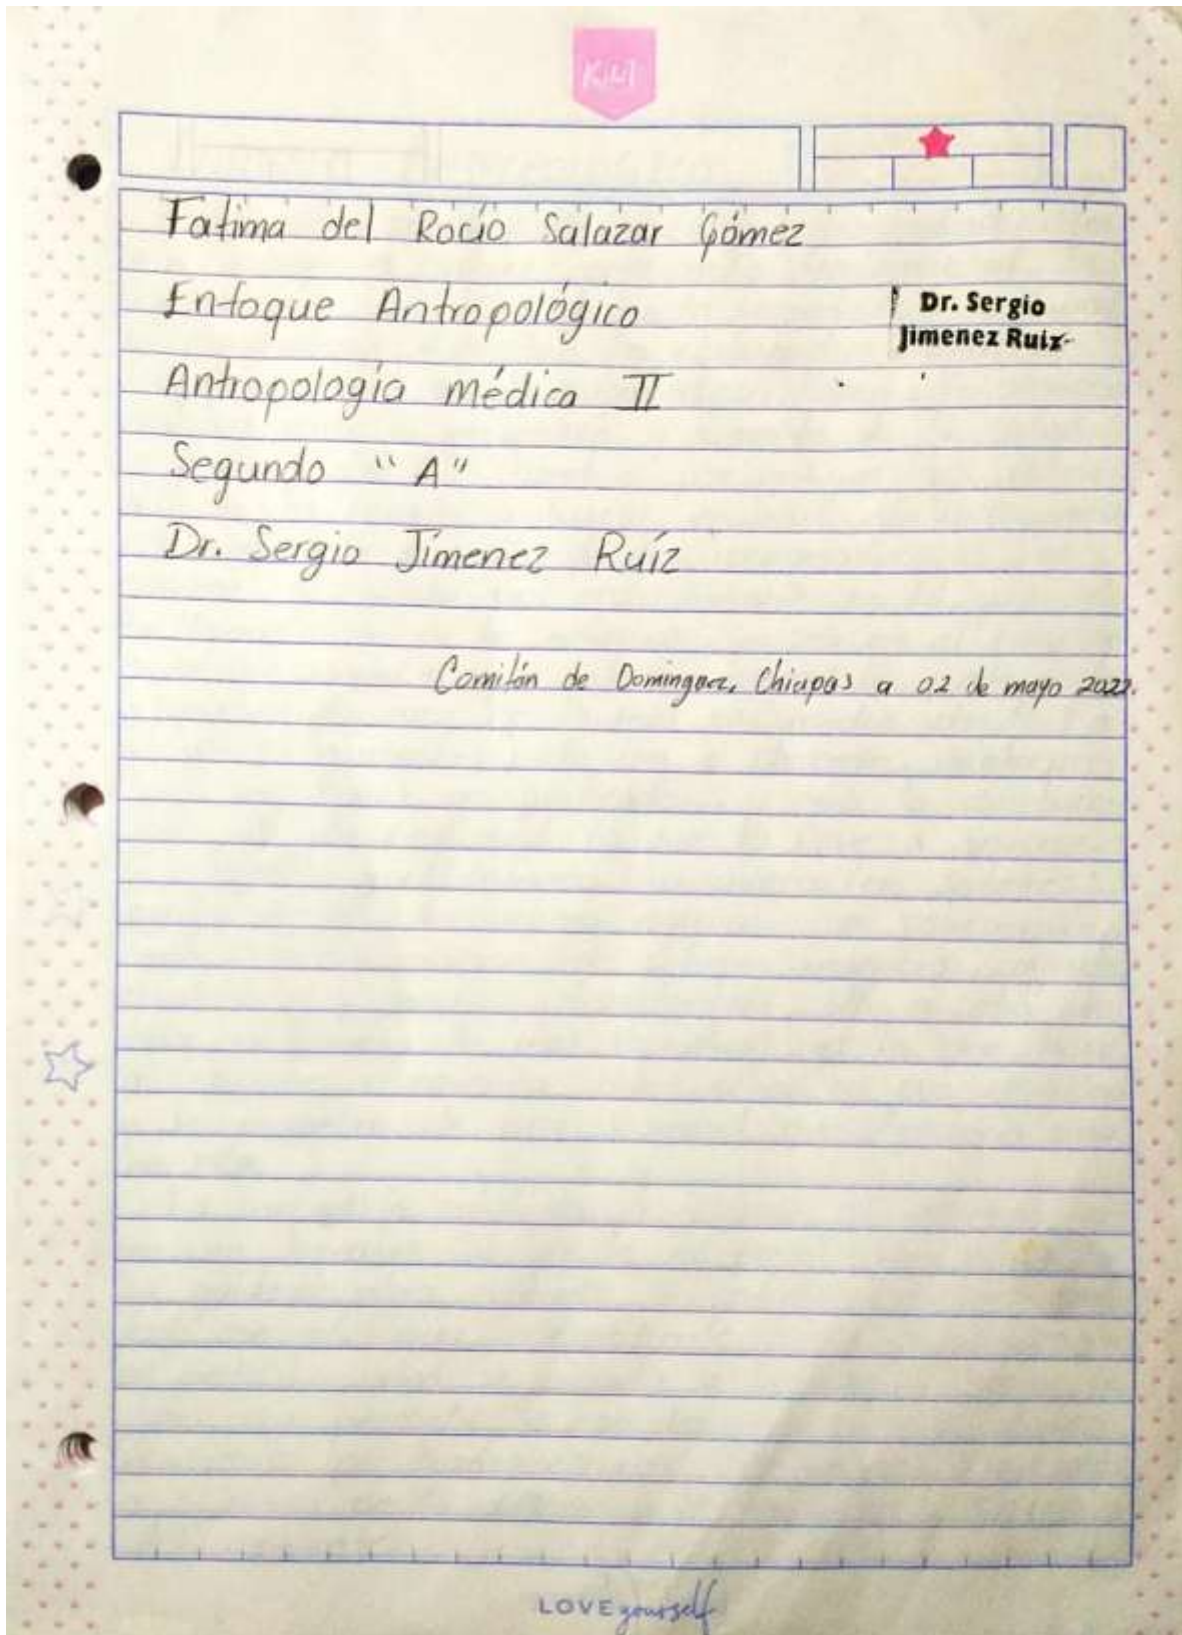 KIUT
Fatima del Rocío Salazar Gómez
Enfoque Antropológico
Dr. Sergio
Jimenez Ruiz
Antropología médica II
Segundo "A"
Dr. Sergio Jímenez Ruíz
Comitán de Dominguez, Chiapas a 02 de mayo 2022.
LOVE yourself